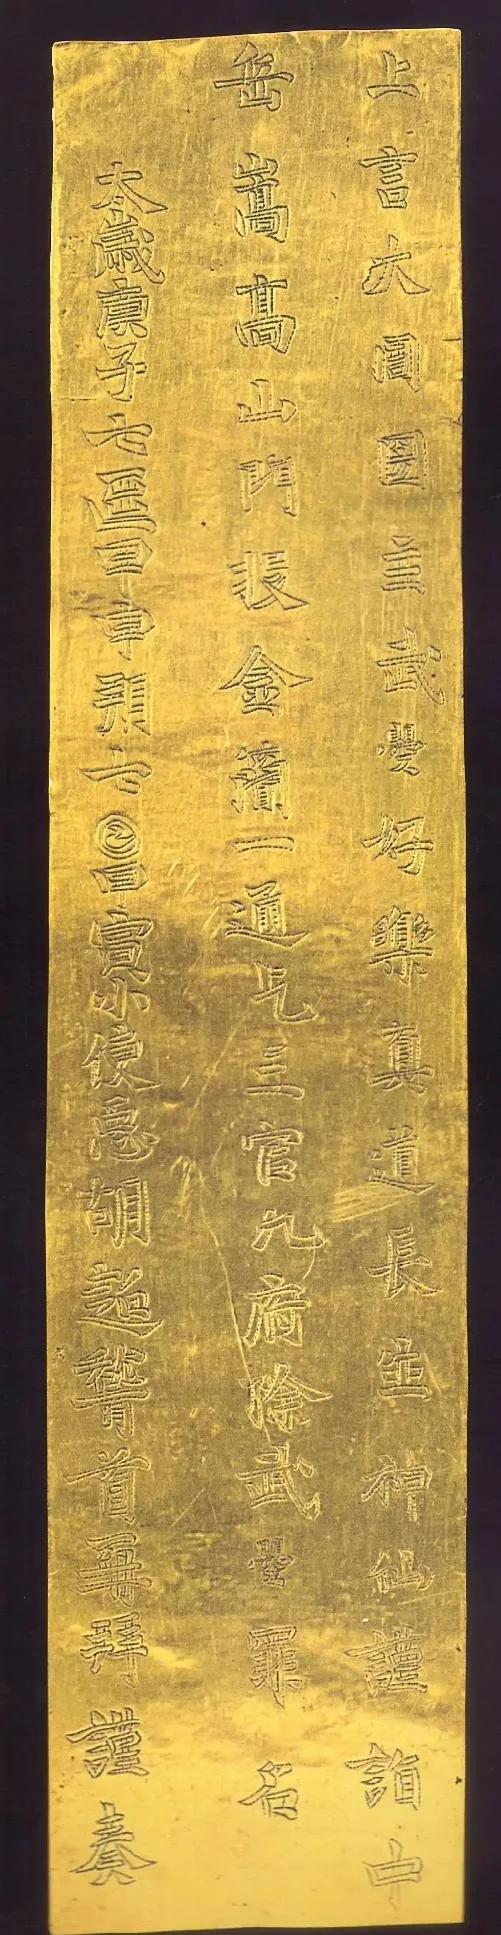 上言大周圀主武曌好樂真道長𤯔神仙謹詣中
岳嵩高山門投金簡一通乞三官九府除武曌罪名
太歲庚子七𠥱甲申朔七𡆠甲寅小使𢘑胡超稽首再拜謹奏